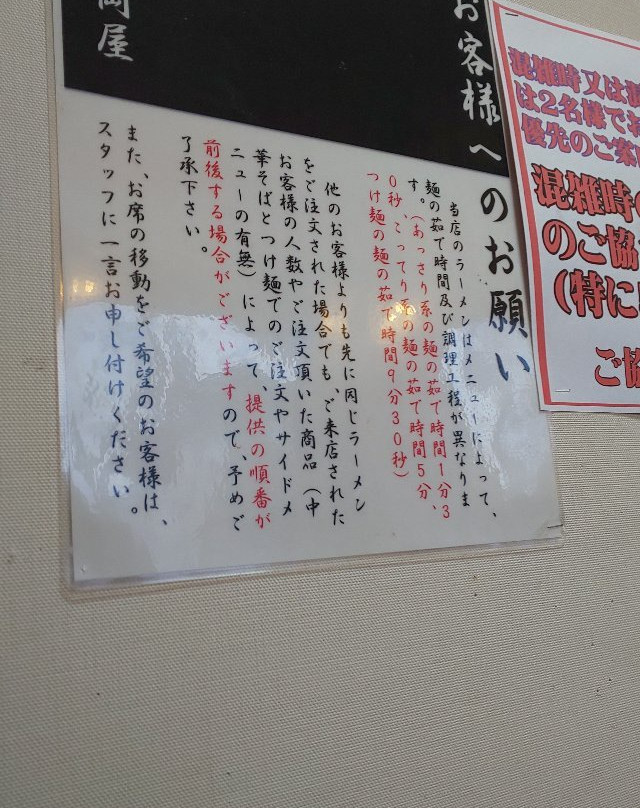 お客様へのお願い
当店のラーメンはメニューによって、
麺の茹で時間及び調理工程が異なりま
す。（あっさり系の麺の茹で時間１分３
０秒、こってり系の麺の茹で時間５分、
つけ麺の麺の茹で時間９分３０秒）
他のお客様よりも先に同じラーメン
をご注文された場合でも、ご来店された
お客様の人数やご注文頂いた商品（中
華そばとつけ麺でのご注文やサイドメ
ニューの有無）によって、提供の順番が
前後する場合がございますので、予めご
了承下さい。
また、お席の移動をご希望のお客様は、
スタッフに一言お申し付けください。
岡屋
混雑時又は
は２名様で
優先のご案
混雑時
のご協
（特に
ご協